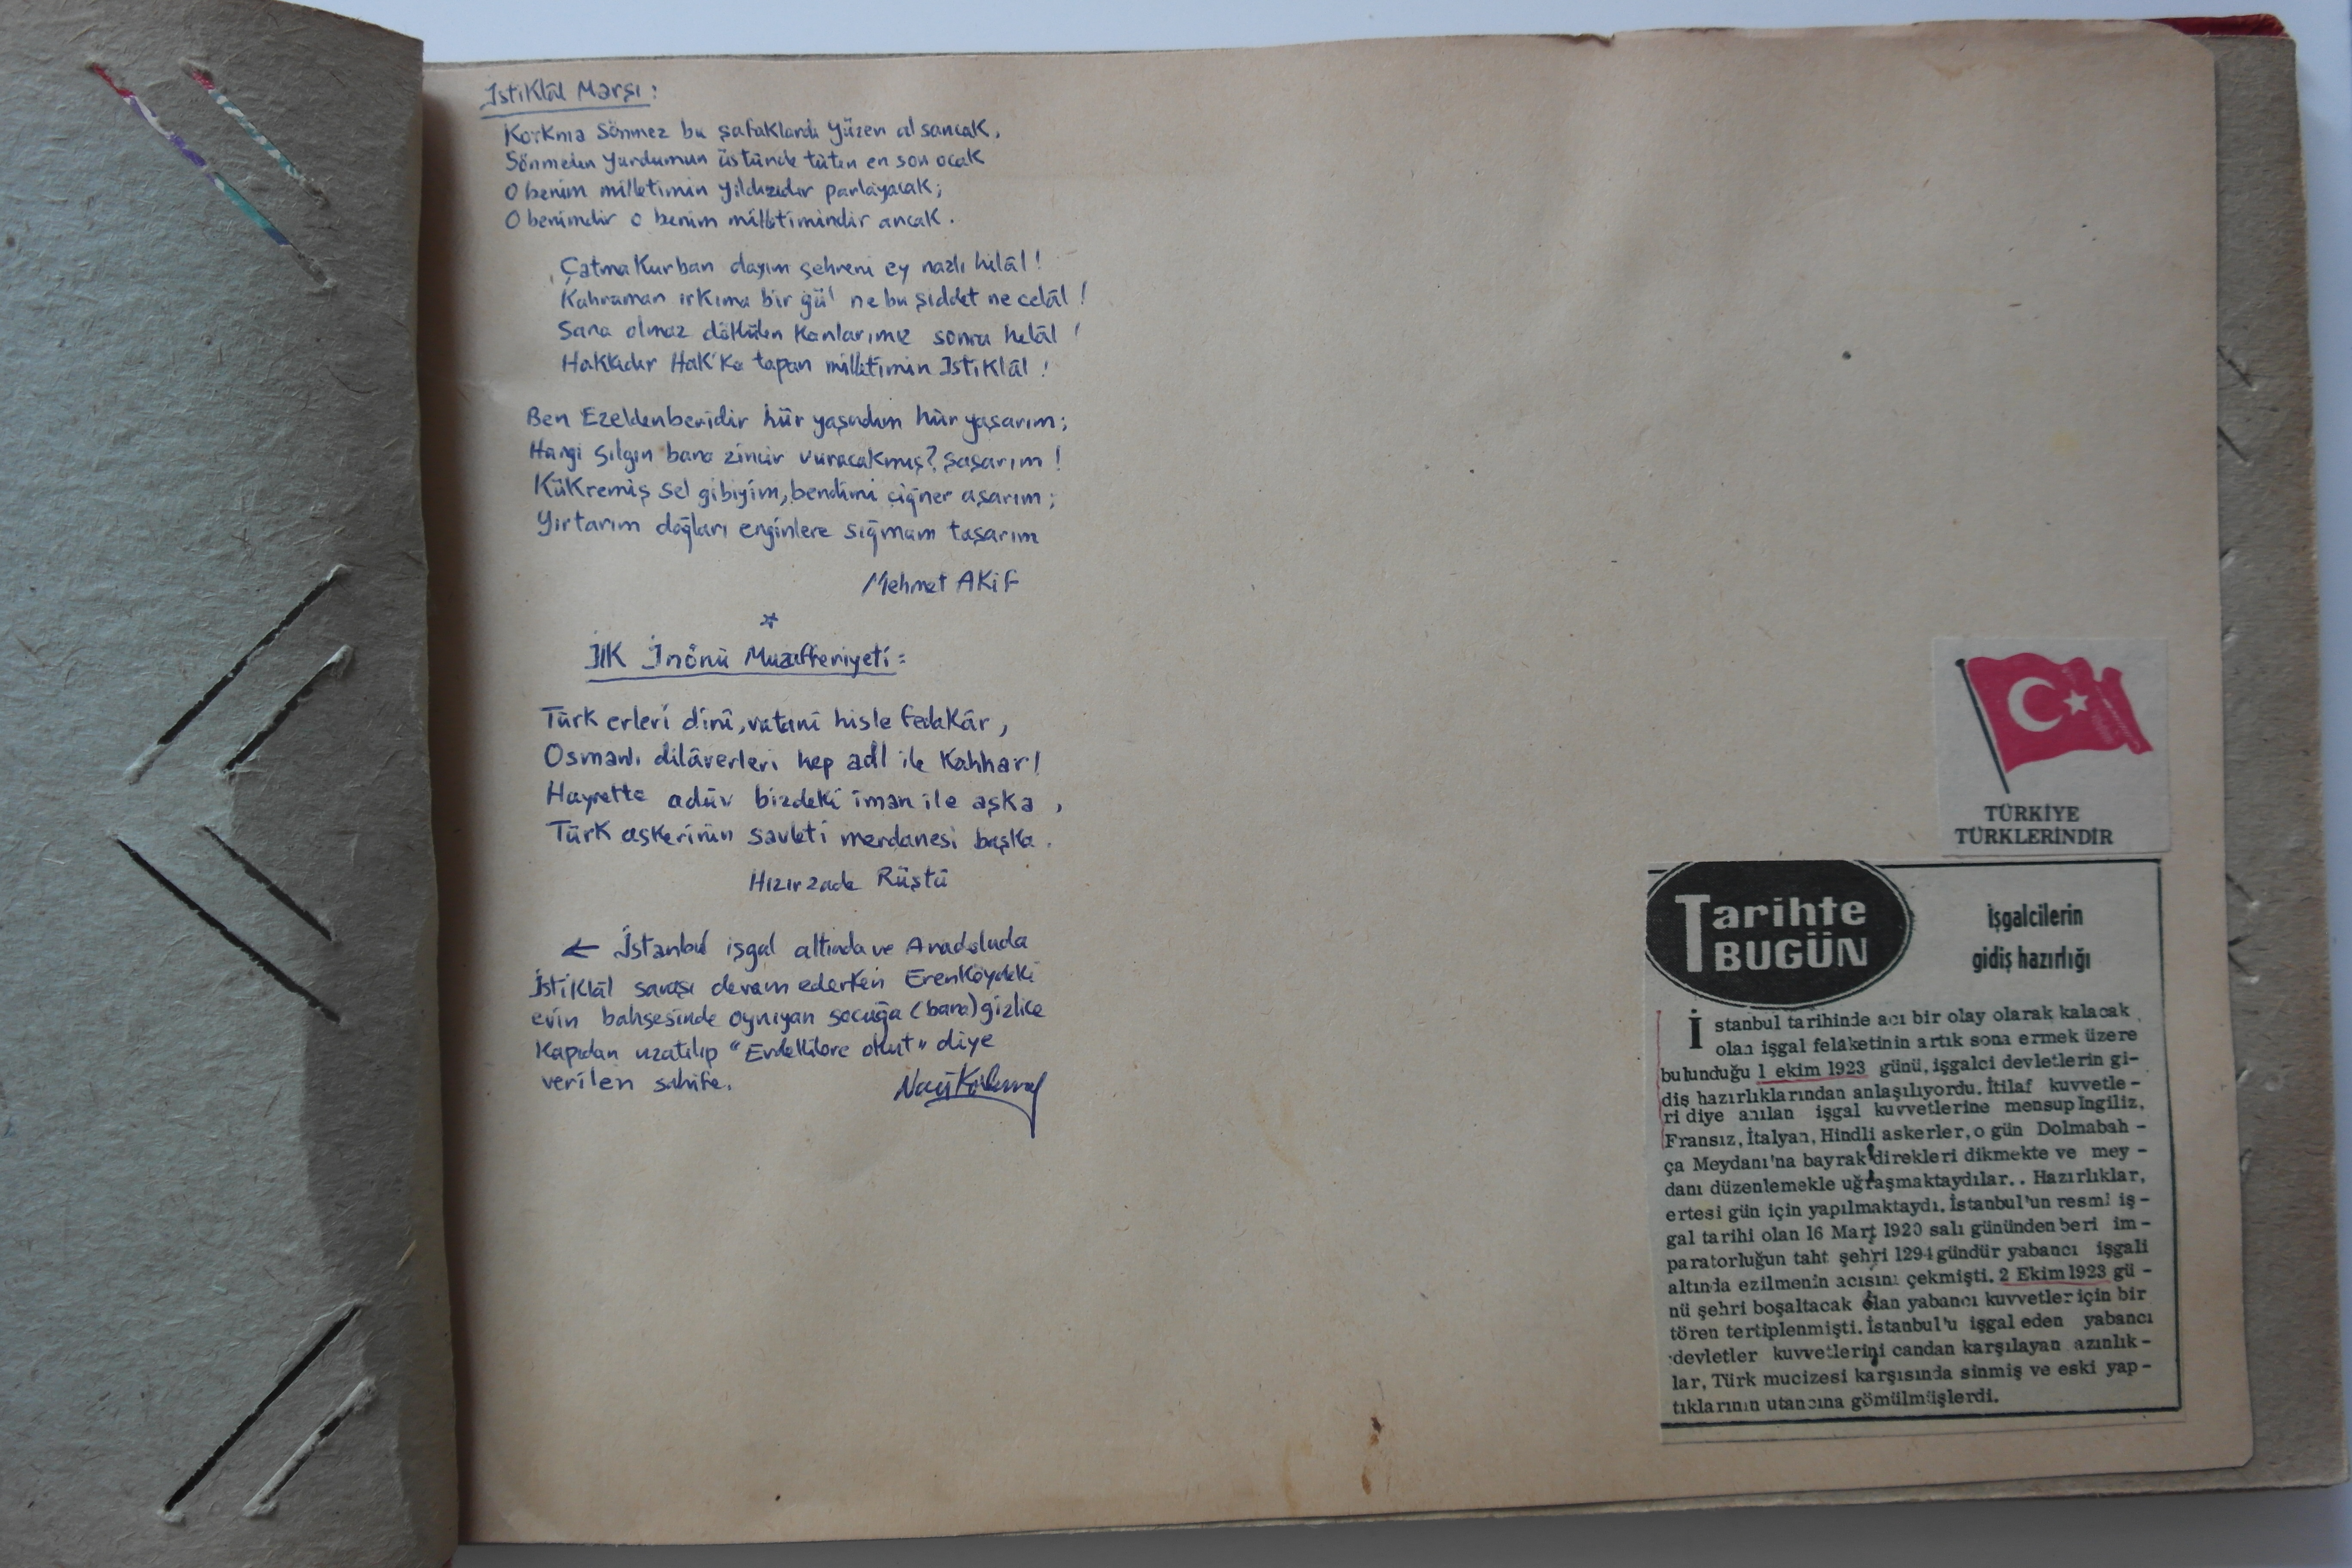 İstiklâl Marşı:
Korkma Sönmez bu şafaklarda yüzen al sancak,
Sönmeden yurdumun üstünde tüten en son ocak
O benim milletimin yıldızıdır parlayacak;
O benimdir o benim milletimindir ancak.
Çatma Kurban olayım şehreni ey nazlı hilâl!
Kahraman ırkıma bir gül ne bu şiddet ne celâl!
Sana olmaz dökülen kanlarımız sonra helâl!
Hakkıdır Hak'ka tapan milletimin İstiklâl!
Ben Ezeldenberidir hür yaşadım hür yaşarım;
Hangi şılgın bana zincir vuracakmış? şaşarım!
Kükremiş sel gibiyim, bendimi çiğner aşarım;
Yırtarım dağları enginlere sığmam taşarım
Mehmet AKİF
İlk İnönü Muzafferiyeti:
Türk erleri dinî, vatanî hisle fedakâr,
Osmanlı dilâverleri hep adl ile kahhar!
Hayrette adüv bizdeki iman ile aşka,
Türk askerinin savleti merdanesi başka.
Hızırzade Rüştü
← İstanbul işgal altında ve Anadoluda
İstiklâl savaşı devam ederken Erenköydeki
evin bahşesinde oynıyan şocuğa (bana) gizlice
Kapıdan uzatılıp "Evdekilere okut" diye
verilen sahife.
TÜRKİYE
TÜRKLERİNDİR
Tarihte
BUGÜN
İşgalcilerin
gidiş hazırlığı
İstanbul tarihinde acı bir olay olarak kalacak
olan işgal felâketinin artık sona ermek üzere
bulunduğu 1 ekim 1923 günü, işgalci devletlerin gi-
diş hazırlıklarından anlaşılıyordu. İtilaf kuvvetle-
ri diye anılan işgal kuvvetlerine mensup İngiliz,
Fransız, İtalyan, Hindli askerler, o gün Dolmabah-
ça Meydanı'na bayrak direkleri dikmekte ve mey-
danı düzenlemekle uğraşmaktaydılar.. Hazırlıklar,
ertesi gün için yapılmaktaydı. İstanbul'un resmî iş-
gal tarihi olan 16 Mart 1920 salı gününden beri im-
paratorluğun taht şehri 1294 gündür yabancı işgali
altında ezilmenin acısını çekmişti. 2 Ekim 1923 gü-
nü şehri boşaltacak olan yabancı kuvvetler için bir
tören tertiplenmişti. İstanbul'u işgal eden yabancı
devletler kuvvetlerini candan karşılayan azınlık-
lar, Türk mucizesi karşısında sinmiş ve eski yap-
tıklarının utancına gömülmüşlerdi.